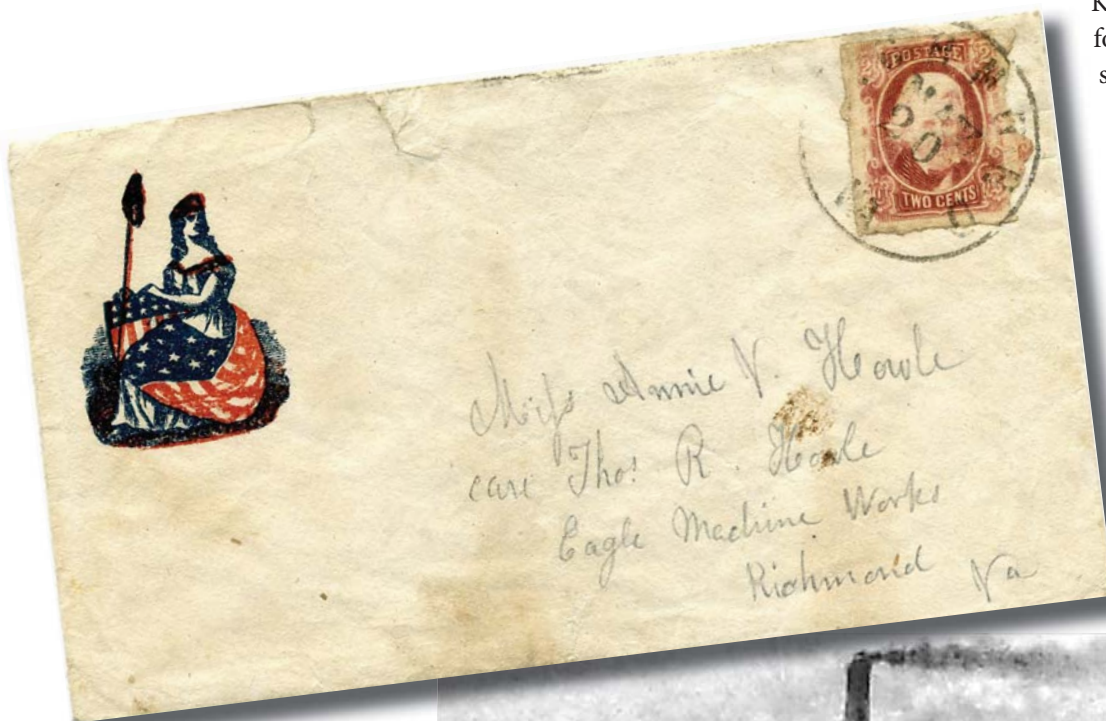 K
fo
s
POSTAGE
2 2
20
TWO CENTS
Miss Annie V. Howle
care Thos. R. Howle
Eagle Machine Works
Richmond Va